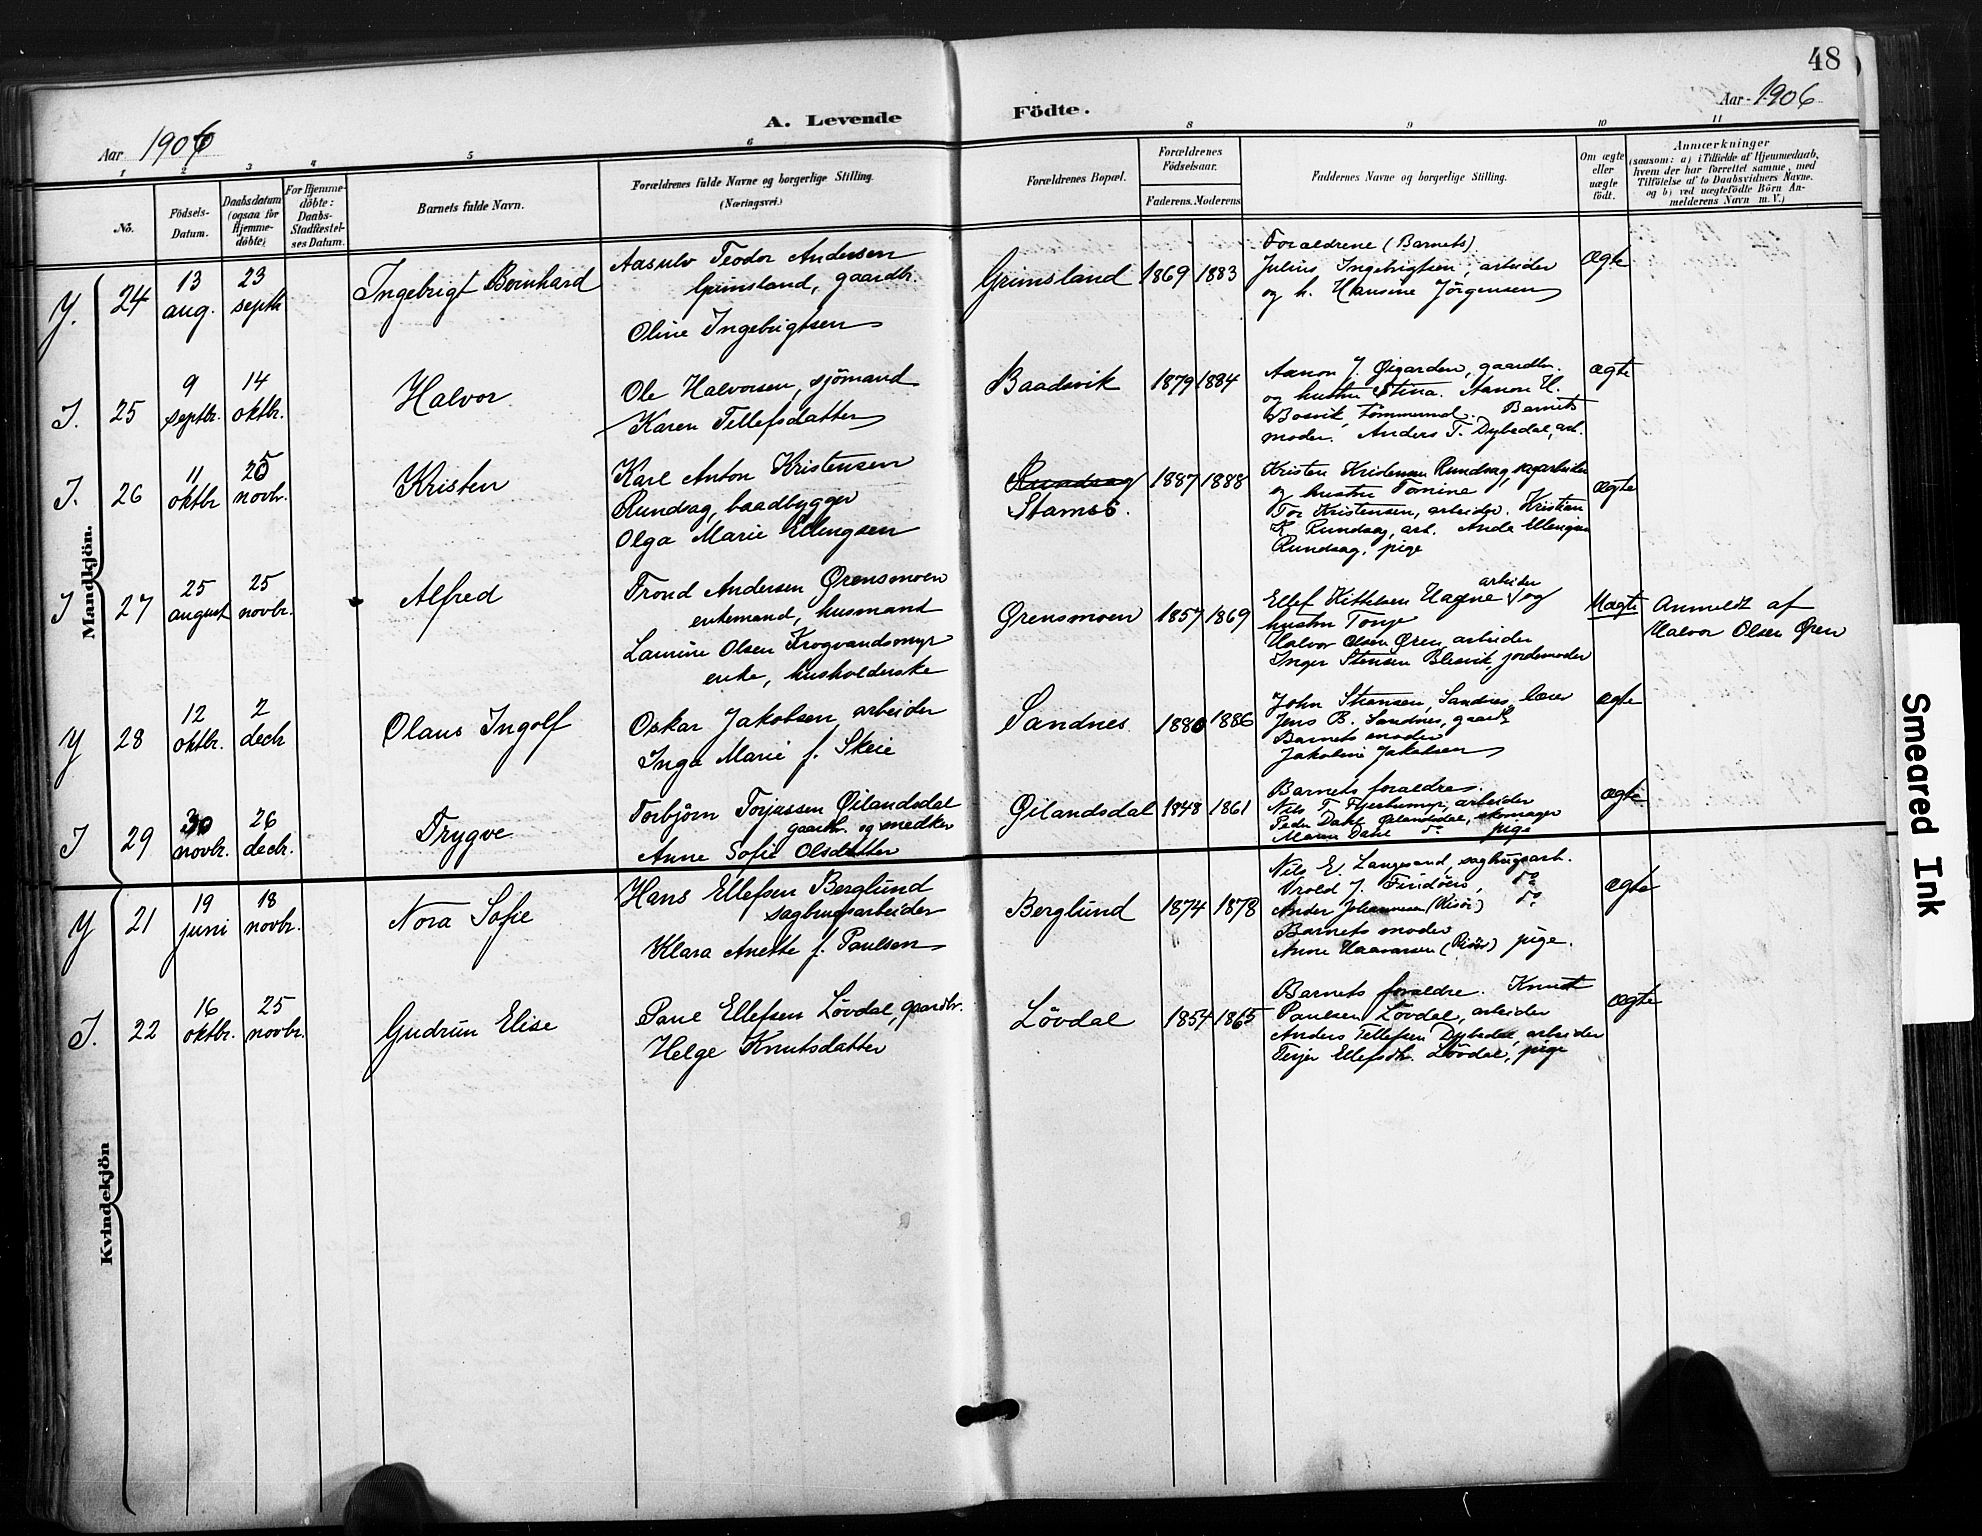 48
Aar 1906
A. Levende Födte.
Aar 1906
1 2 3 4 5 6 8 9 10 11
No.
Födsels-
Datum.
Daabsdatum
(ogsaa for
Hjemme-
döbte)
For Hjemme-
döbte:
Daabs-
Stadfestel-
ses Datum.
Barnets fulde Navn.
Forældrenes fulde Navne og borgerlige Stilling
(Næringsvei.)
Forældrenes Bopæl.
Forældrenes
Födselsaar.
Faderens. Moderens
Faddernes Navne og borgerlige Stilling.
Om ægte
eller
uægte
födt.
Anmærkninger
(saasom: a) i Tilfælde af Hjemmedaab,
hvem der har forrettet samme, med
Tilföielse af to Daabsvidners Navne.
og b) ved uægtefödte Börn An-
melderens Navn m. V.)
Mandkjön.
Y. 24
13
aug.
23
septbr
Ingebrigt Bernhard
Aasulv Teodor Andersen
Grimsland, gaardbr.
Oline Ingebrigtsen
Grimsland 1869 1883
Forældrene (Barnets)
Julius Ingebrigtsen, arbeider
og h. Hansine Jörgensen
Ægte
I. 25
9
septbr.
14
oktbr.
Halvor
Ole Halvorsen, sjömand
Karen Tellefsdatter
Baadsvik 1879 1884
Aanon J. Øigarden, gaardbr.
og hustru Stina. Aanon H.
Bosvik, tömmermd. Barnets
moder. Anders T. Dybsdal, arb.
Ægte
I. 26
11
oktbr
25
novbr.
Kristen
Karl Anton Kristensen
Rundsag, baadbygger
Olga Marie Ellingsen
Rundsag
Stamsö. 1887 1888
Kristen Kristensen Rundsag, sagarbeider
og hustru Tomine
Tor Kristensen, arbeider. Kristian
K. Rundsag, arb. Anda Ellingsen
Rundsag, pige
Ægte
I 27
25
august
25
novbr.
Alfred
Trond Andersen Ørensmoen
enkemand, husmand
Laurine Olsen Krogvandsmyr
enke, husholderske
Ørensmoen 1857 1869
arbeider
Ellef Kittelsen Hagne og
hustru Tonje
Halvor Olsen Øren, arbeider
Inger Stensen Blesvik, jordemoder
Uægte
Anmeldt af
Halvor Olsen Øren
Y 28
12
oktbr.
2
decb
Olaus Ingolf
Oskar Jakobsen, arbeider
Inga Marie f. Skeie
Sandnes 1880 1886
John Stensen, Sandnes, lærer
Jens B. Sandnes, gaardb
Barnets moder
Jakobine Jakobsen
Ægte
I 29
30
novbr.
26
decb.
Trygve
Torbjörn Torjussen Øilandsdal
gaardbr. og snedker
Anne Sofie Olsdatter
Øilandsdal 1848 1861
Barnets forældre.
Nils T. Fjerbumyr, arbeider
Peder Dahl Øilandsdal, skomager
Maren Dahl do pige
Ægte
Kvindekjön
Y 21
19
juni
18
novbr.
Nora Sofie
Hans Ellefsen Berglund
sagbrugsarbeider
Klara Anette f. Paulsen
Berglund 1874 1878
Nils E. Langesand, sagbrugsarb.
Vrold J. Findöen, do
Ander Johannesen (Risör) do
Barnets moder
Anne Haavorsen (Risör) pige.
Ægte
I. 22
16
oktbr.
25
novbr.
Gudrun Elise
Paul Ellefsen Lövdal, gaardbr.
Helge Knutsdatter
Lövdal 1854 1865
Barnets forældre. Knut
Paulsen Lövdal, arbeider
Anders Tellefsen Dybsdal, arbeider
Terjer Ellefsdtr. Lövdal, pige
Ægte
Smeared Ink